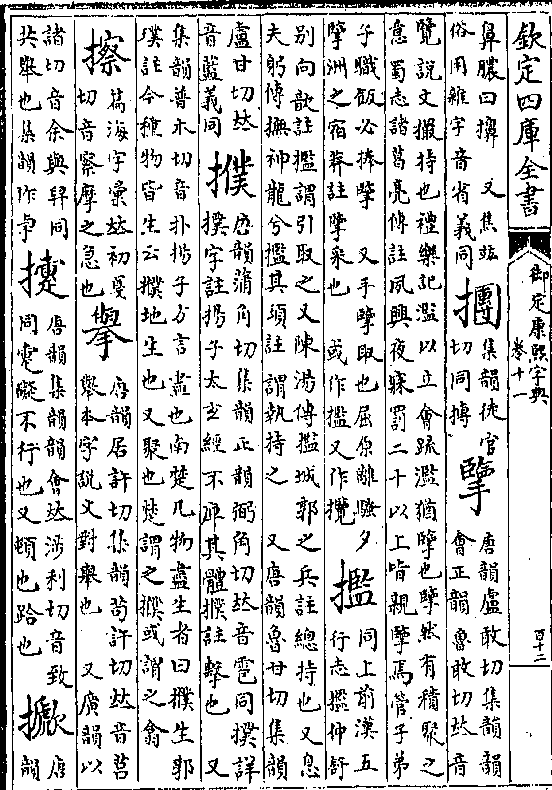 欽定四庫全書
御定康熙字典
卷十一
百十二
鼻膿曰擤 又焦竑
俗用雜字音省義同
㩛
集韻徒官
切同摶
擥
唐韻盧敢切集韻韻
會正韻魯敢切𠀤音
覽說文撮持也禮樂記濫以立會疏濫猶擥也擥然有積聚之
意蜀志諸葛亮傳註夙興夜寐罰二十以上皆親擥焉管子弟
子職飯必捧擥 又手擥取也屈原離騷夕
擥洲之宿莽註擥采也 或作㩜又作攬
㩜
同上前漢五
行志㩜仲舒
別向歆註㩜謂引取之又陳湯傳㩜城郭之兵註總持也又息
夫躬傳撫神龍兮㩜其須註謂執持之 又唐韻魯甘切集韻
盧甘切𠀤
音藍義同
擈
唐韻蒲角切集韻正韻弼角切𠀤音雹同撲詳
撲字註揚子太玄經不雕其體擈註擊也 又
集韻普木切音扑揚子方言盡也南楚凡物盡生者曰擈生郭
璞註今種物皆生云擈地生也又聚也楚謂之擈或謂之翕
擦
篇海字彙𠀤初戛
切音察摩之急也
擧
唐韻居許切集韻茍許切𠀤音莒
舉本字說文對舉也 又廣韻以
諸切音余與舁同
共舉也集韻作
唐韻集韻韻會𠀤陟利切音致
同疐礙不行也又頓也跲也
唐
韻